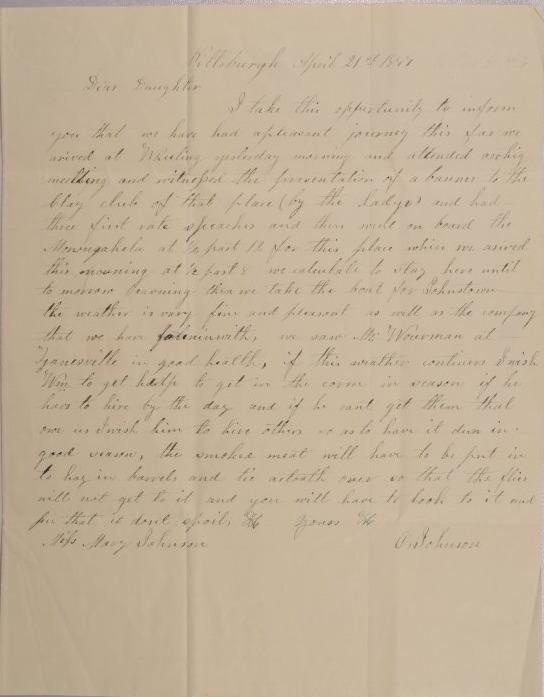 Pittsburgh April 21st
Dear Daughter
I take this opportunity to inform
you that we have had apleasant journey this far we
arived at Wheeling yesterday morning and attended awhig
meetting and witnessed the presentation of a banner to the
Clay club of that place (by the ladys) and had
three first rate speaches and then went on board the
Monongahela at ½ past 12 for this place where we arived
this morning at ½ past 8 we calculate to stay here until
to morrow evening then we take the boat for Johnstown
the weather is vary fine and pleasant as well as the company
that we have falen in with, we saw Mr at
Zanesville in good health, if this weather continues I wish
Wm to get help to get in the corn in season if he
has to hire by the day and if he cant get them that
owe us I wish him to hire others so as to have it dun in
good season, the smoked meat will have to be put in
to hay in barrels and tie acloath over so that the flies
will not get to it and you will have to look to it and
see that it dont spoil, &c yours &c
Miss Mary Johnson O. Johnson